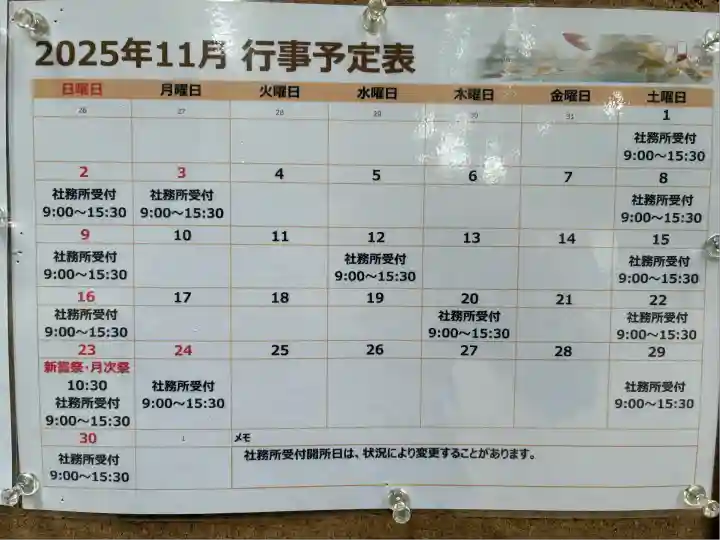 2025年11月 行事予定表
日曜日 月曜日 火曜日 水曜日 木曜日 金曜日 土曜日
26 27 28 29 30 31 1
社務所受付
9:00～15:30
2 3 4 5 6 7 8
社務所受付 社務所受付 社務所受付
9:00～15:30 9:00～15:30 9:00～15:30
9 10 11 12 13 14 15
社務所受付 社務所受付 社務所受付
9:00～15:30 9:00～15:30 9:00～15:30
16 17 18 19 20 21 22
社務所受付 社務所受付 社務所受付
9:00～15:30 9:00～15:30 9:00～15:30
23 24 25 26 27 28 29
新嘗祭・月次祭
10:30 社務所受付 社務所受付
社務所受付 9:00～15:30 9:00～15:30
9:00～15:30
30 1 メモ
社務所受付 社務所受付開所日は、状況により変更することがあります。
9:00～15:30